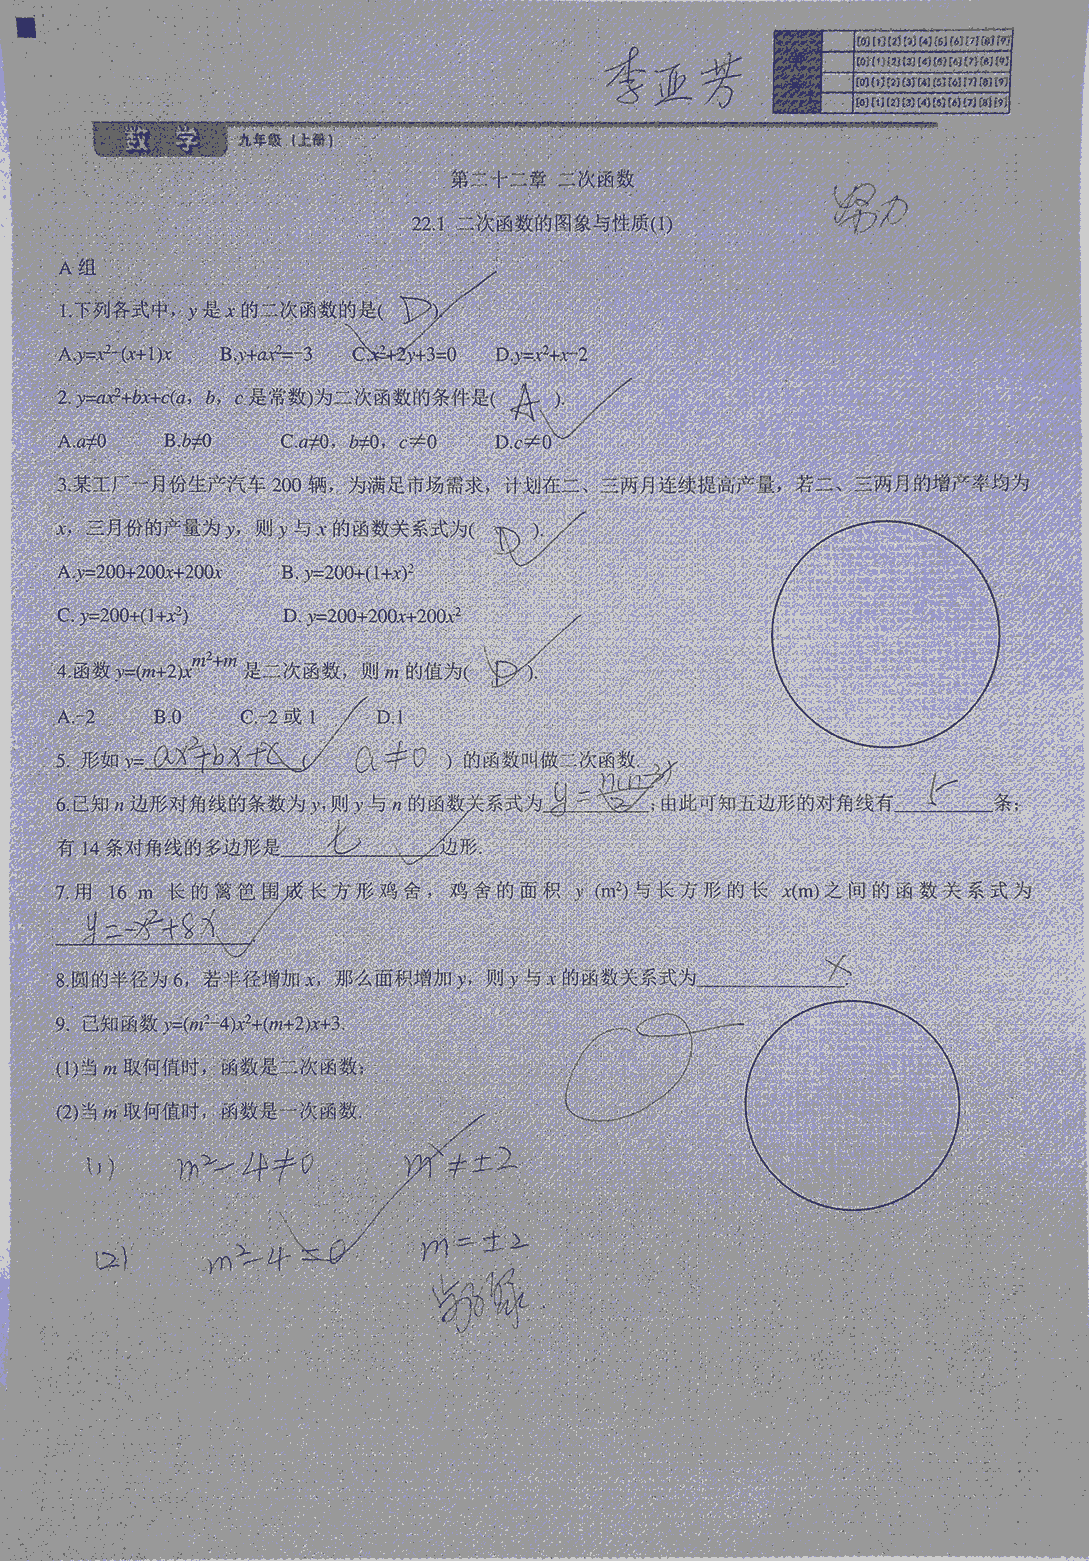 李亚芳
[0][1][2][3][4][5][6][7][8][9]
[0][1][2][3][4][5][6][7][8][9]
[0][1][2][3][4][5][6][7][8][9]
[0][1][2][3][4][5][6][7][8][9]
数 学 九年级(上册)
第二十二章 二次函数
22.1 二次函数的图象与性质(1)
努力
A 组
1.下列各式中，y 是 x 的二次函数的是( D ).
A.y=x²-(x+1)x B.y+ax²=-3 C.x²+2y+3=0 D.y=x²+x-2
2. y=ax²+bx+c(a，b，c 是常数)为二次函数的条件是( A ).
A.a≠0 B.b≠0 C.a≠0，b≠0，c≠0 D.c≠0
3.某工厂一月份生产汽车 200 辆，为满足市场需求，计划在二、三两月连续提高产量，若二、三两月的增产率均为
x，三月份的产量为 y，则 y 与 x 的函数关系式为( D ).
A.y=200+200x+200x B. y=200+(1+x)²
C. y=200+(1+x²) D. y=200+200x+200x²
4.函数 y=(m+2)x^{m²+m} 是二次函数，则 m 的值为( D ).
A.-2 B.0 C.-2 或 1 D.1
5. 形如 y= ax²+bx+c ( a≠0 ) 的函数叫做二次函数.
6.已知 n 边形对角线的条数为 y,则 y 与 n 的函数关系式为 y=n(n-3)/2 ;由此可知五边形的对角线有 5 条；
有 14 条对角线的多边形是 七 边形.
7.用 16 m 长的篱笆围成长方形鸡舍，鸡舍的面积 y (m²)与长方形的长 x(m)之间的函数关系式为
y=-x²+8x
8.圆的半径为 6，若半径增加 x，那么面积增加 y，则 y 与 x 的函数关系式为 .
9. 已知函数 y=(m²-4)x²+(m+2)x+3.
(1)当 m 取何值时，函数是二次函数；
(2)当 m 取何值时，函数是一次函数.
(1) m²-4≠0 m≠±2
(2) m²-4=0 m=±2